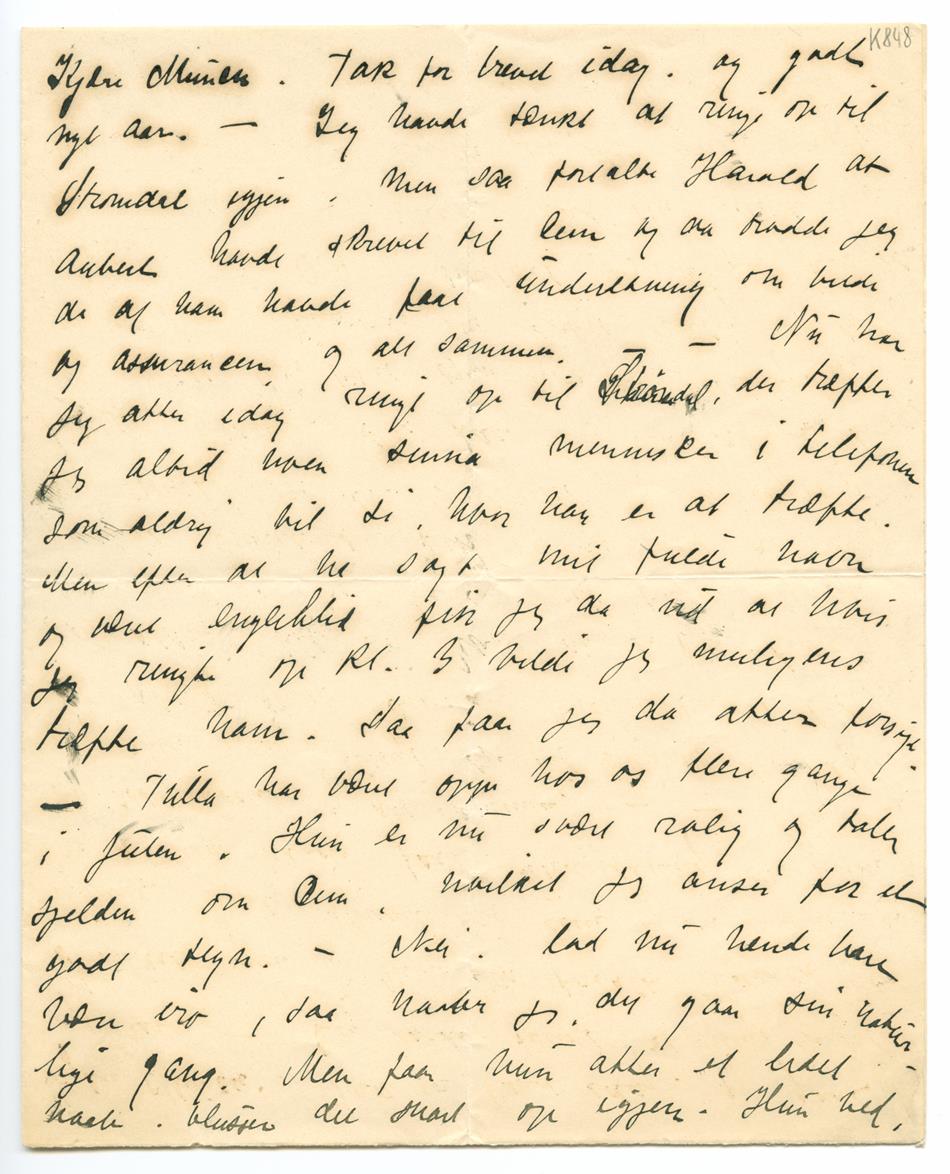 K848
Kjære Munch. Tak for brevet idag. og godt
nyt aar. — Jeg havde tænkt at ringe op til
Stromdal igjen. Men saa fortalte Harold at
Aubert havde skrevet til Dem og da trodde jeg
de af ham havde faat underetning om bilde
og assurancen og alt sammen. — — Nu har
jeg atter idag ringt op til Strømdal, der træffer
jeg altid noen sinna mennesker i telefonen
som aldrig vil si, hvor han er at træffe.
Men efter at ha sagt mit fulde navn
og været engleblid fik jeg da vid at hvis
jeg ringte op kl. 3 vilde jeg muligens
træffe ham. Saa faar jeg da atter forsøge.
— Tulla har været oppe hos os flere gange
i julen. Hun er nu svært rolig og taler
sjelden om Dem, hvilket jeg anser for et
godt tegn. — Nei. lad nu hende bare
være iro, saa haaber jeg, det gaar sin natur-
lige gang. Men faar hun atter et lidet
haab. blusser det snart op igjen. Hun ved,